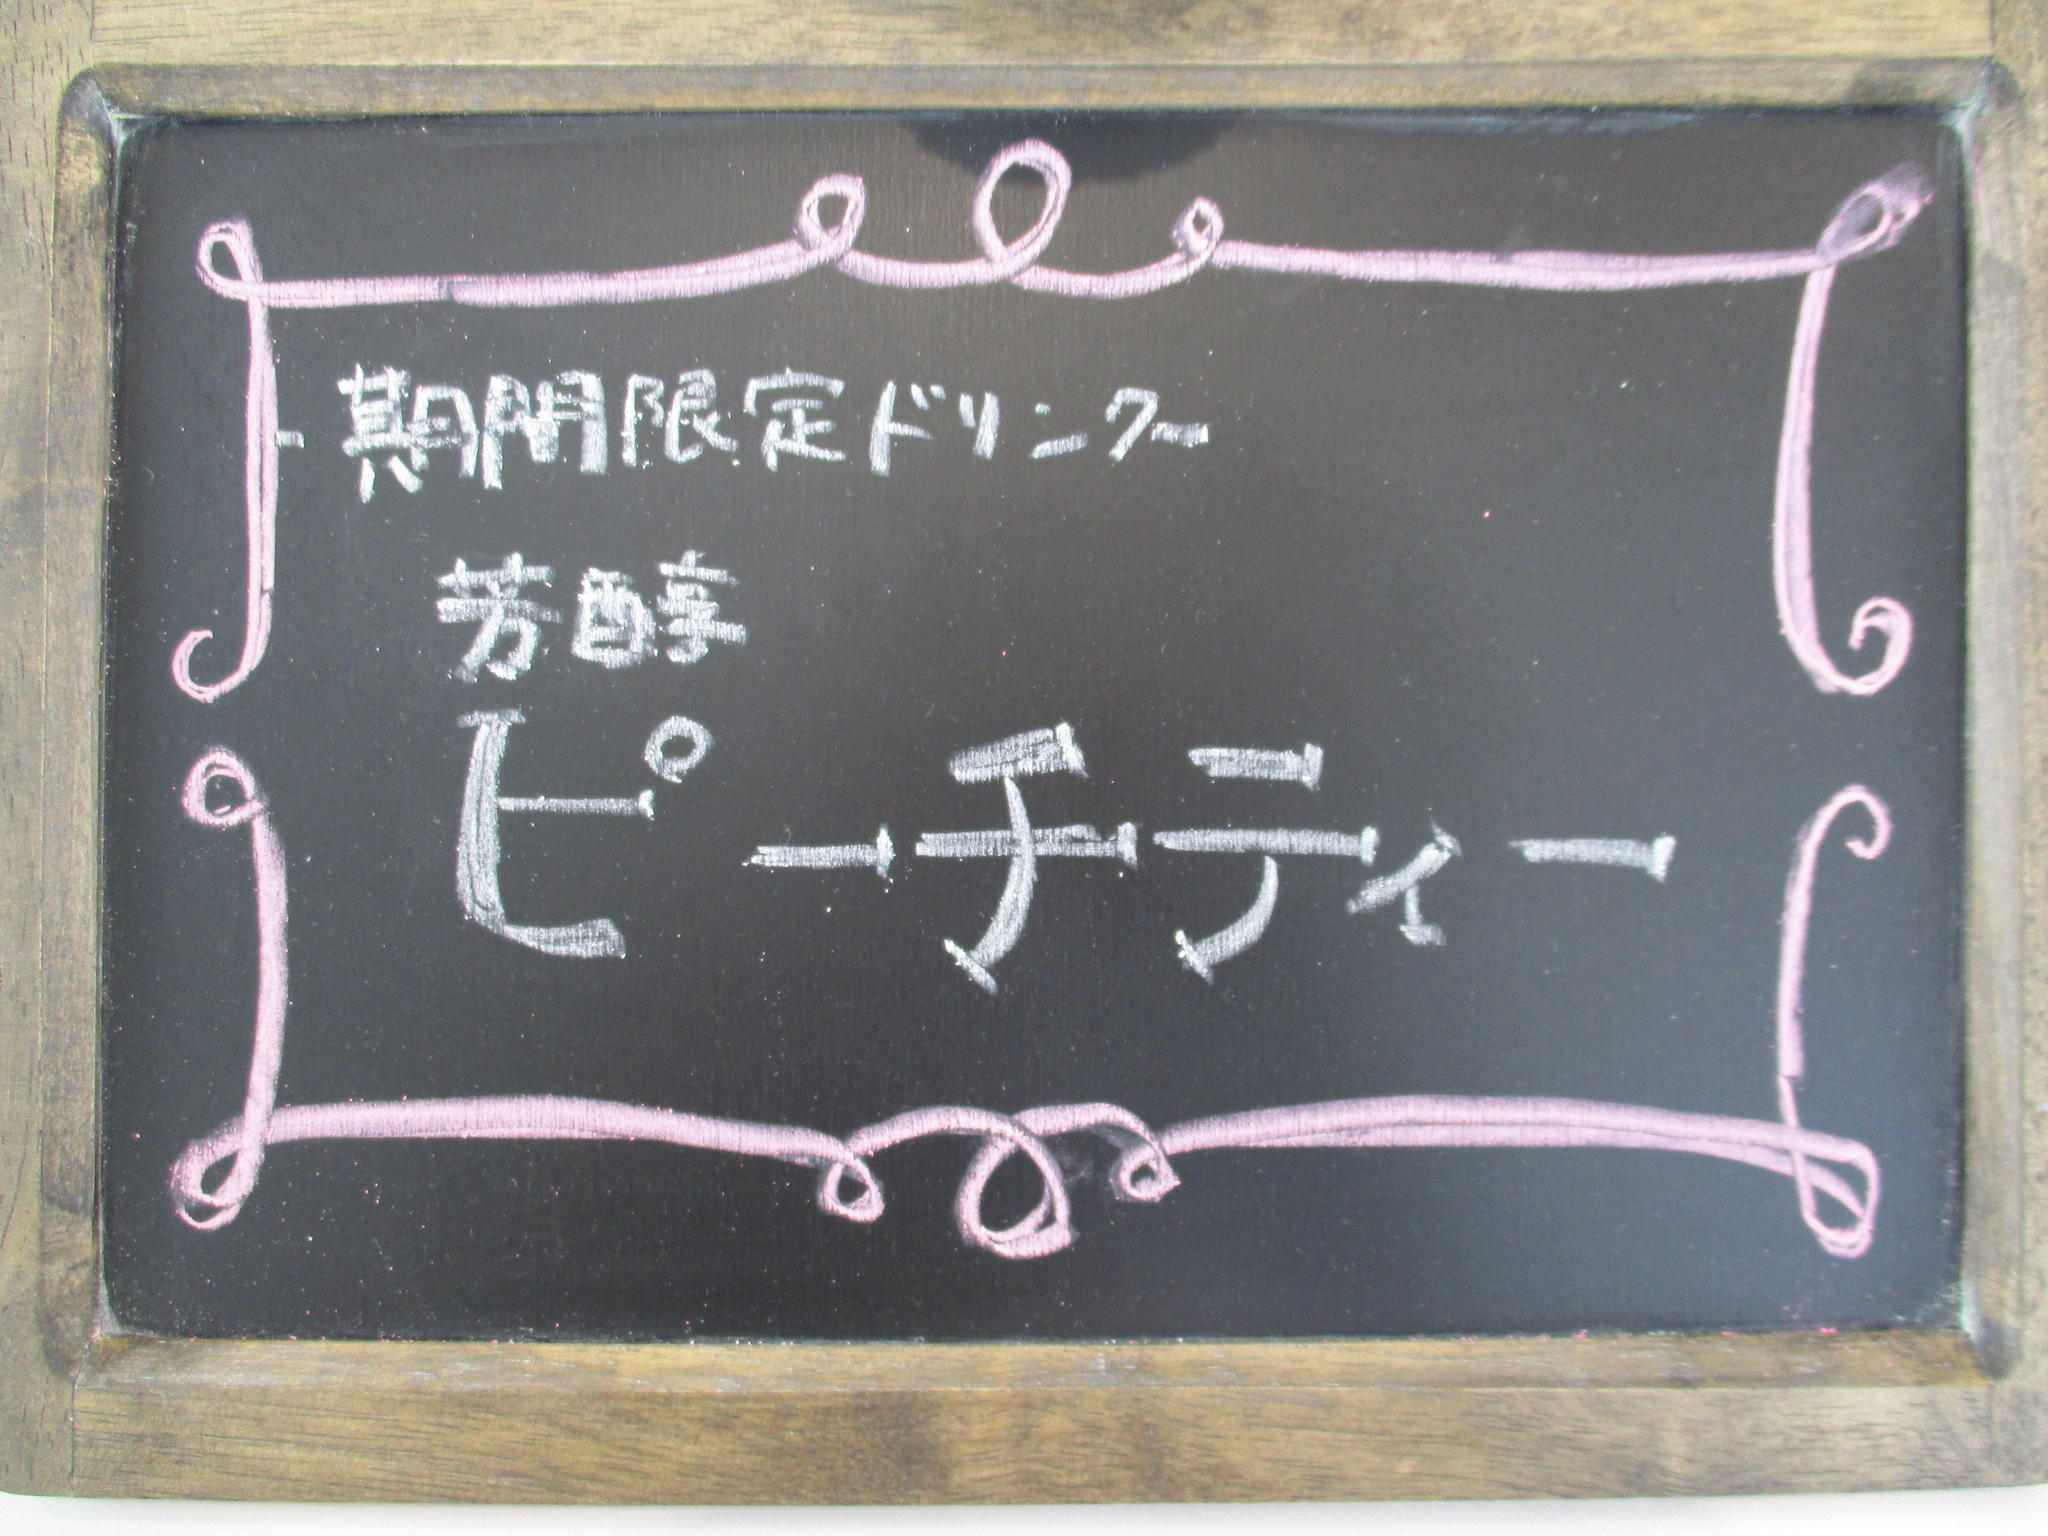 -期間限定ドリンク~
芳醇
ピーチティー